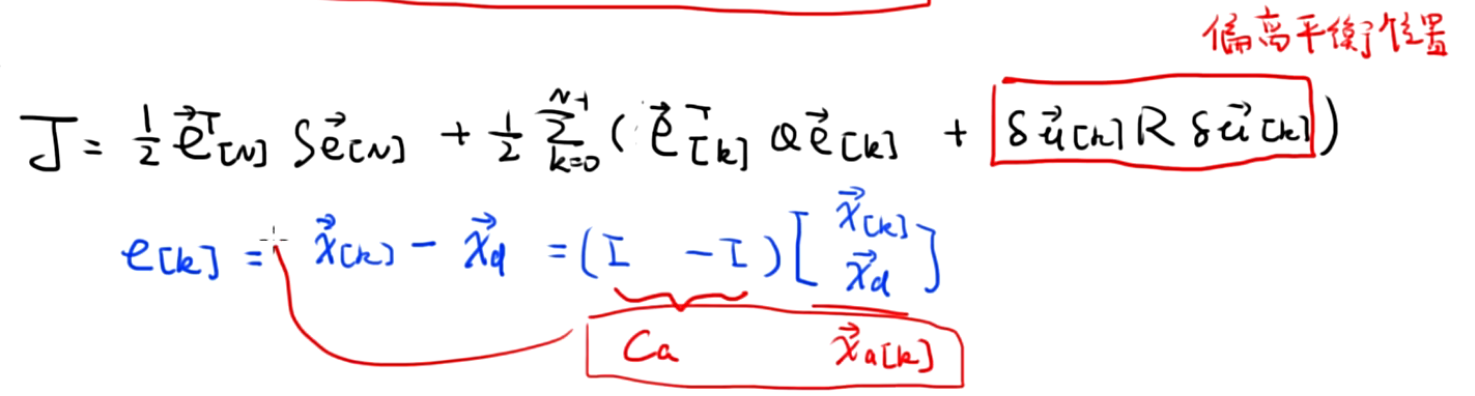 偏离平衡位置
J = \frac{1}{2} \vec{e}^T_{[N]} S \vec{e}_{[N]} + \frac{1}{2} \sum_{k=0}^{N-1} ( \vec{e}^T_{[k]} Q \vec{e}_{[k]} + δ\vec{u}_{[k]} R δ\vec{u}_{[k]} )
e_{[k]} = \vec{x}_{[k]} - \vec{x}_d = (I -I) [ \vec{x}_{[k]} \vec{x}_d ]
C_a \vec{x}_{a[k]}